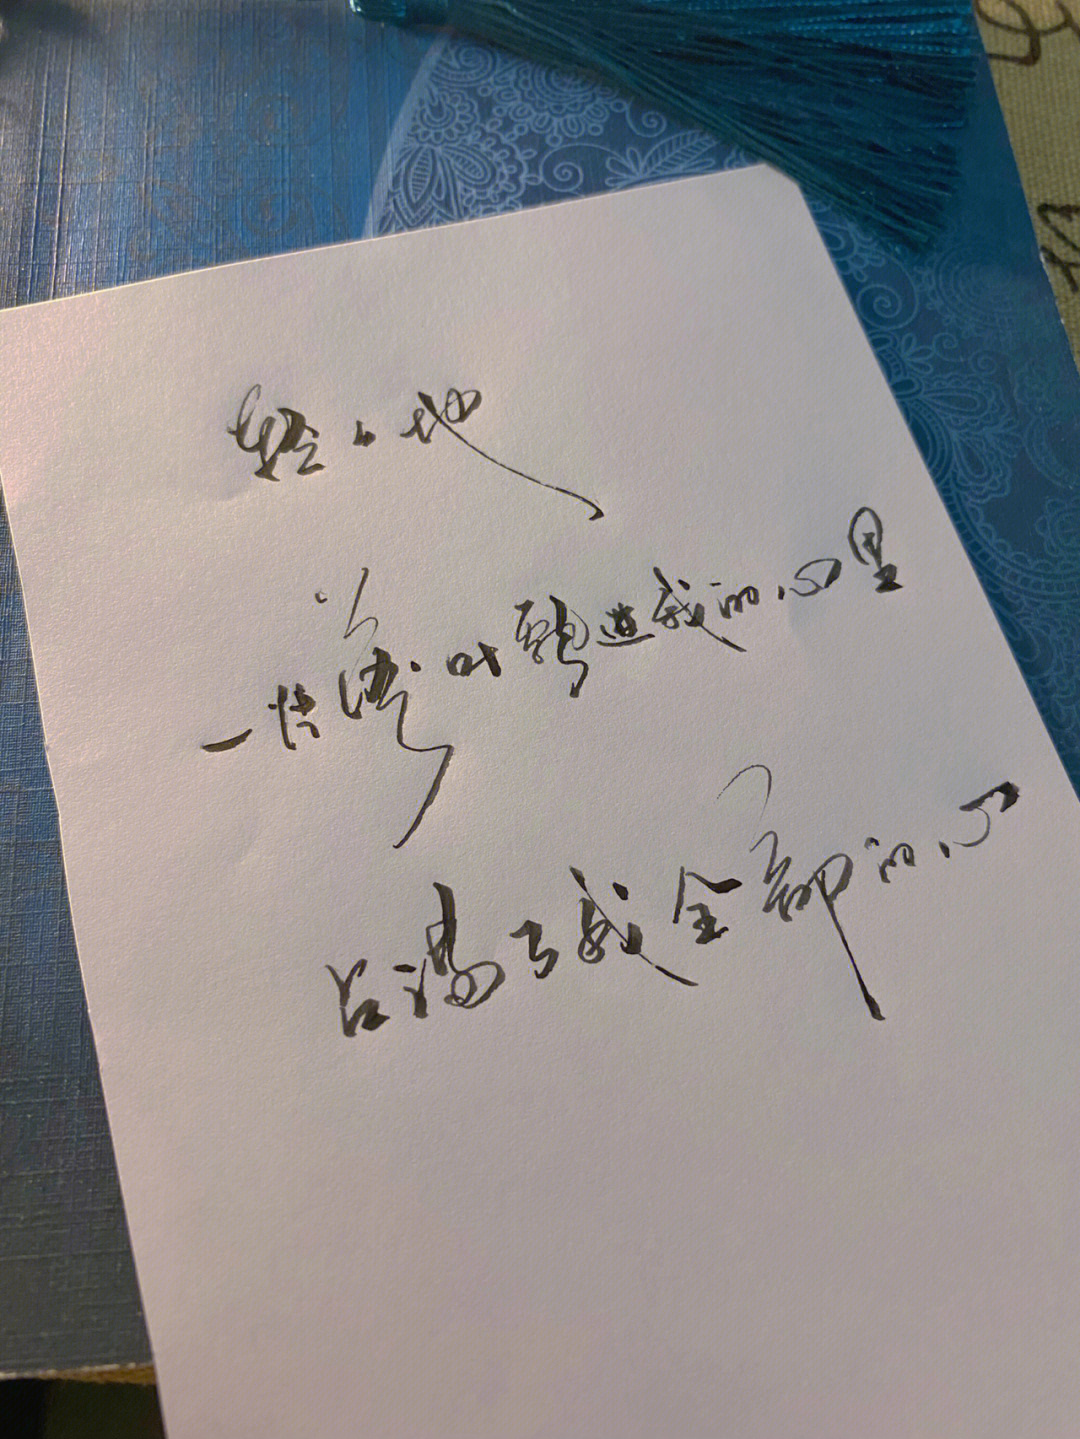 轻々地
一落叶飘进我的心里
占满了我全部的心